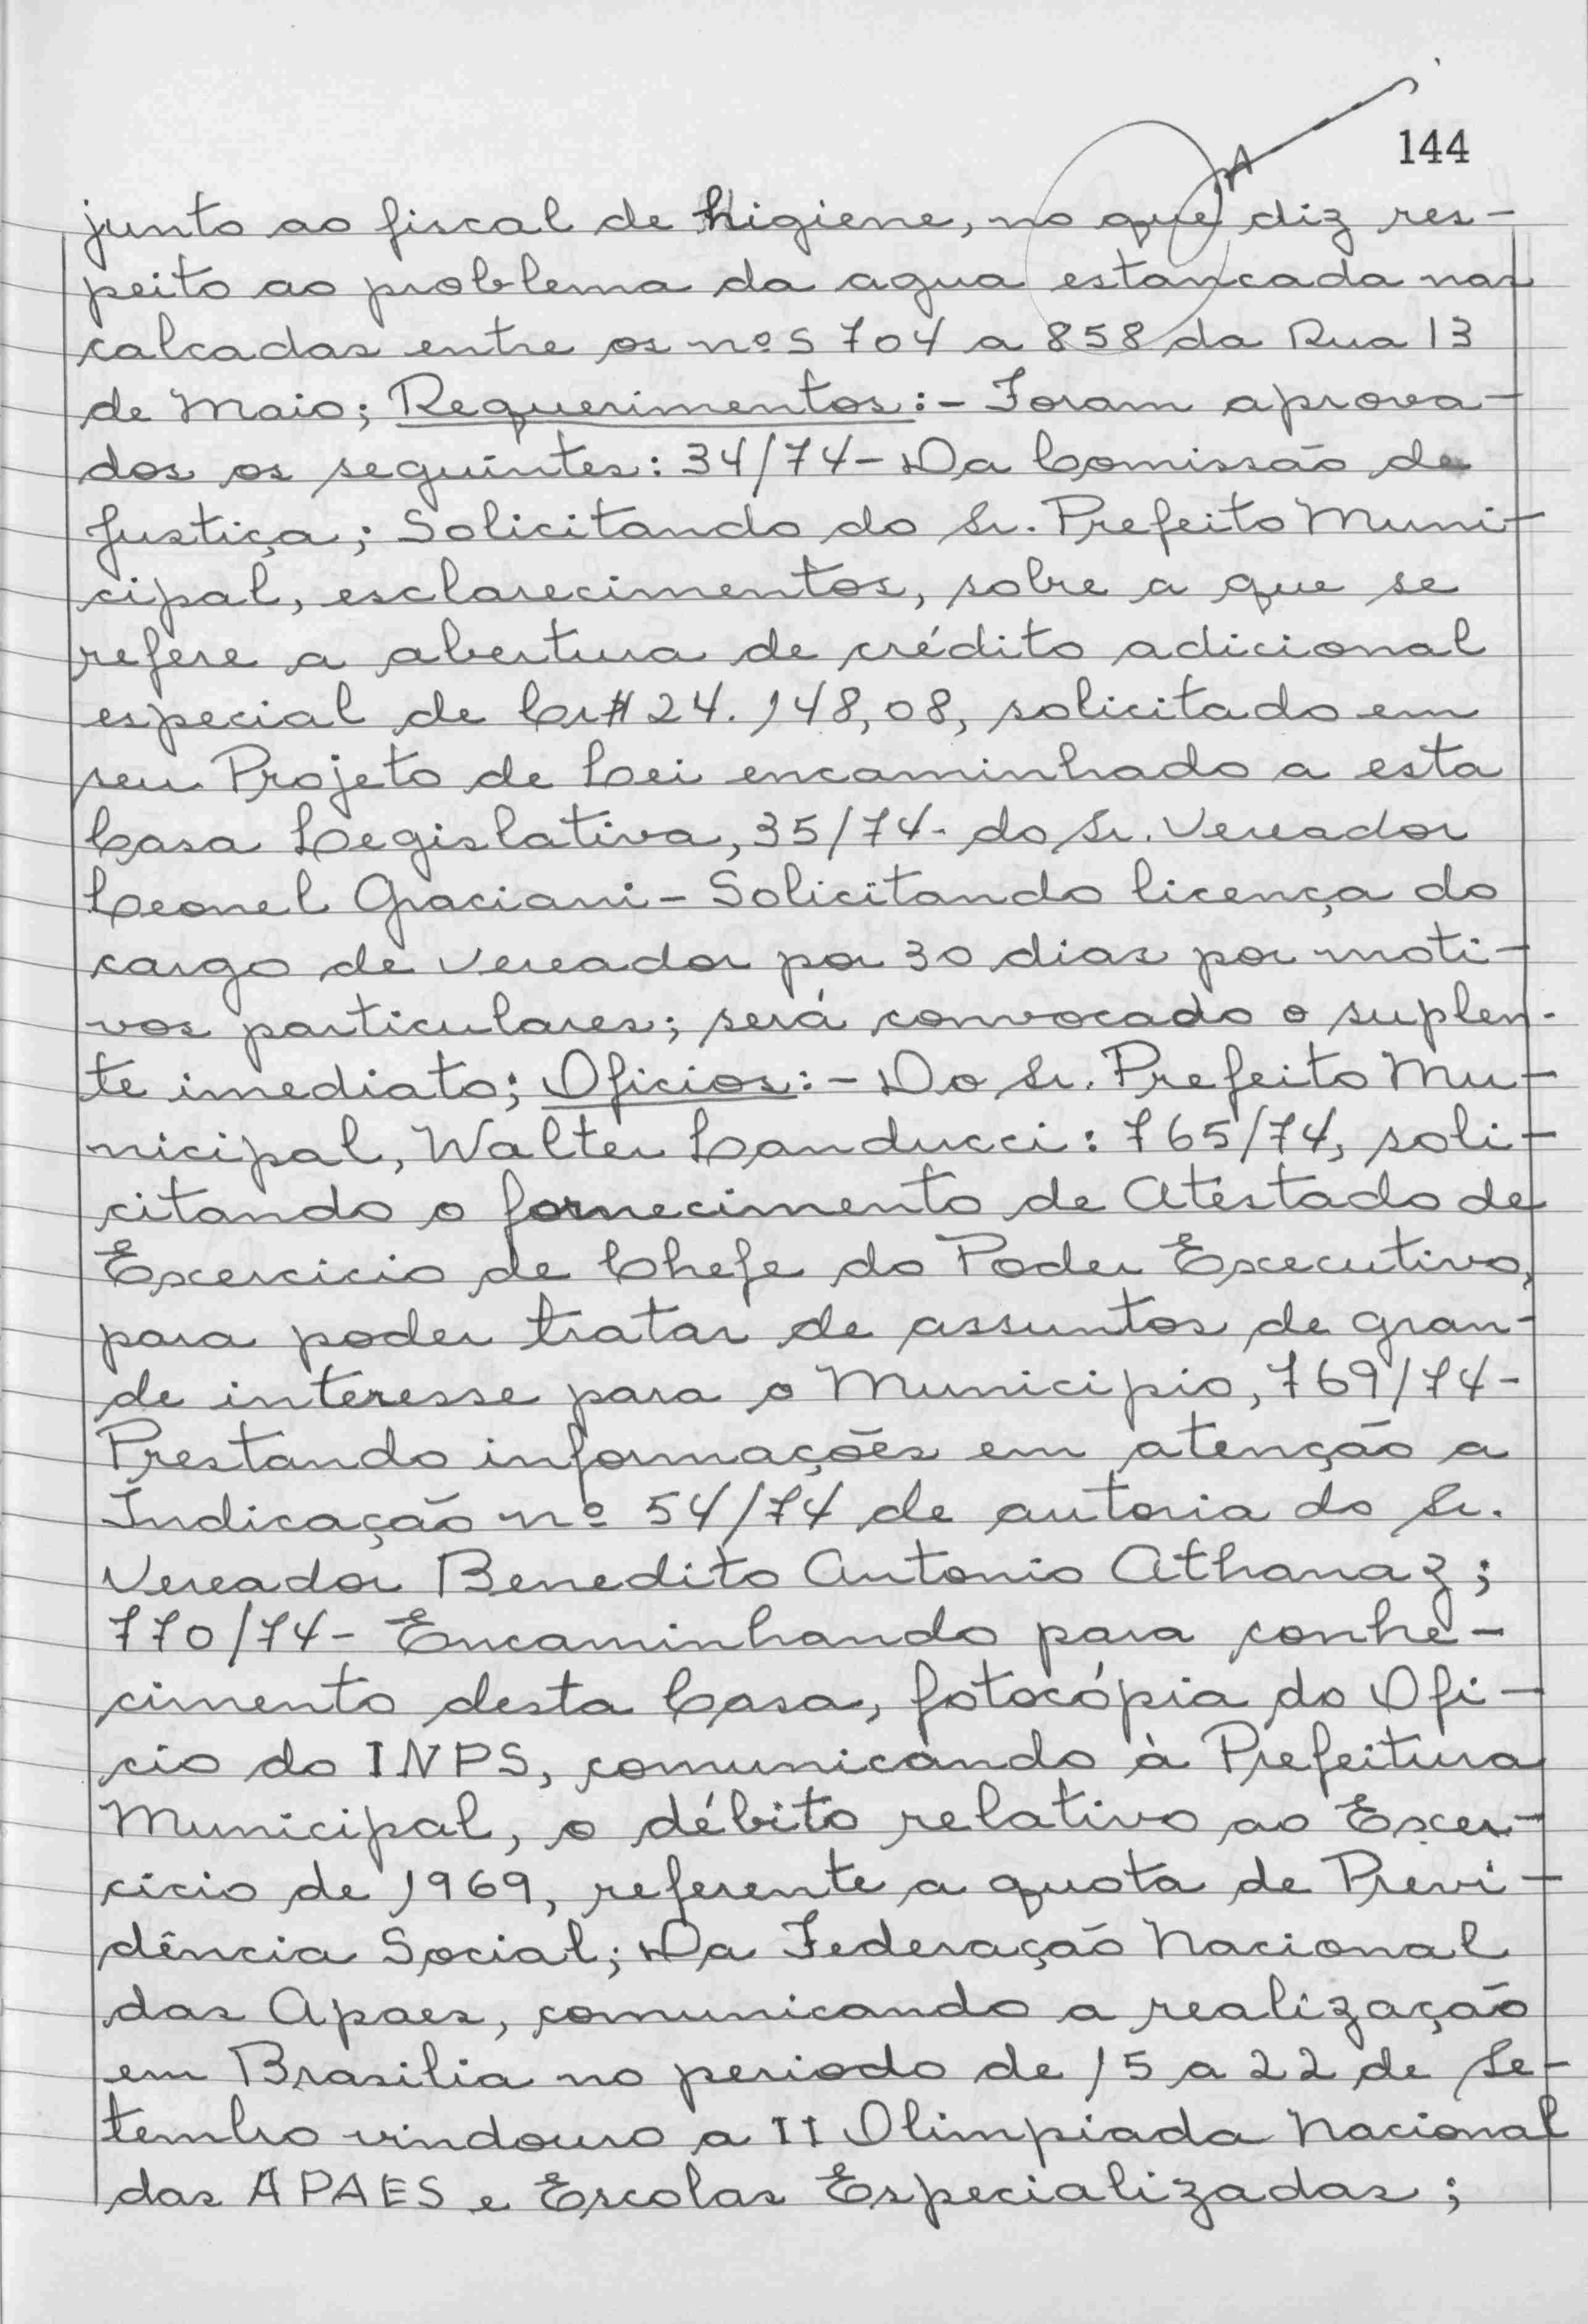 144
junto ao fiscal de higiene, no que diz res-
peito ao problema da agua estancada nas
calcadas entre os nºs 704 a 858 da Rua 13
de Maio; Requerimentos:- Foram aprova-
dos os seguintes: 34/74- Da Comissão de
Justiça; Solicitando do Sr. Prefeito Muni-
cipal, esclarecimentos, sobre a que se
refere a abertura de crédito adicional
especial de Cr$ 24.148,08, solicitado em
seu Projeto de Lei encaminhado a esta
Casa Legislativa, 35/74- do Sr. Vereador
Leonel Graciani- Solicitando licença do
cargo de Vereador por 30 dias por moti-
vos particulares; será convocado o suplen-
te imediato; Oficios:- Do Sr. Prefeito Mu-
nicipal, Walter Landucci: 765/74, soli-
citando o fornecimento de Atestado de
Exercicio de Chefe do Poder Executivo,
para poder tratar de assuntos de gran-
de interesse para o Municipio, 769/74-
Prestando informações em atenção a
Indicação nº 54/74 de autoria do Sr.
Vereador Benedito Antonio Athanaz;
770/74- Encaminhando para conhe-
cimento desta Casa, fotocópia do Ofi-
cio do INPS, comunicando à Prefeitura
Municipal, o débito relativo ao Exer-
cicio de 1969, referente a quota de Previ-
dência Social; Da Federação Nacional
das Apaes, comunicando a realização
em Brasilia no periodo de 15 a 22 de Se-
tembro vindouro a II Olimpiada Nacional
das APAES e Escolas Especializadas;